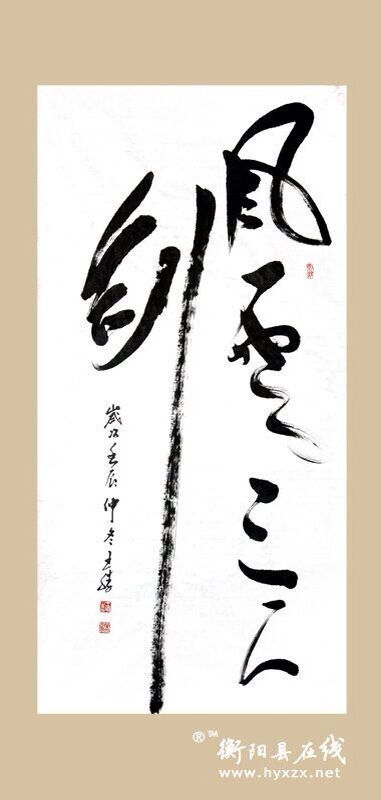 風雲三尺
劍
歲次壬辰仲冬
衡阳县在线
®™
www.hyxzx.net